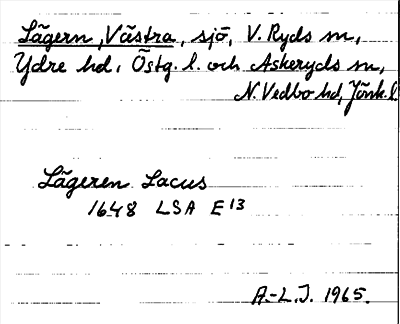 Lägern, Västra, sjö, V. Ryds sn,
Ydre hd, Östg. l. och Askeryds sn,
N. Vedbo hd, Jönk. l.
Lägeren Lacus
1648 LSA E 13
A.-L.J. 1965.